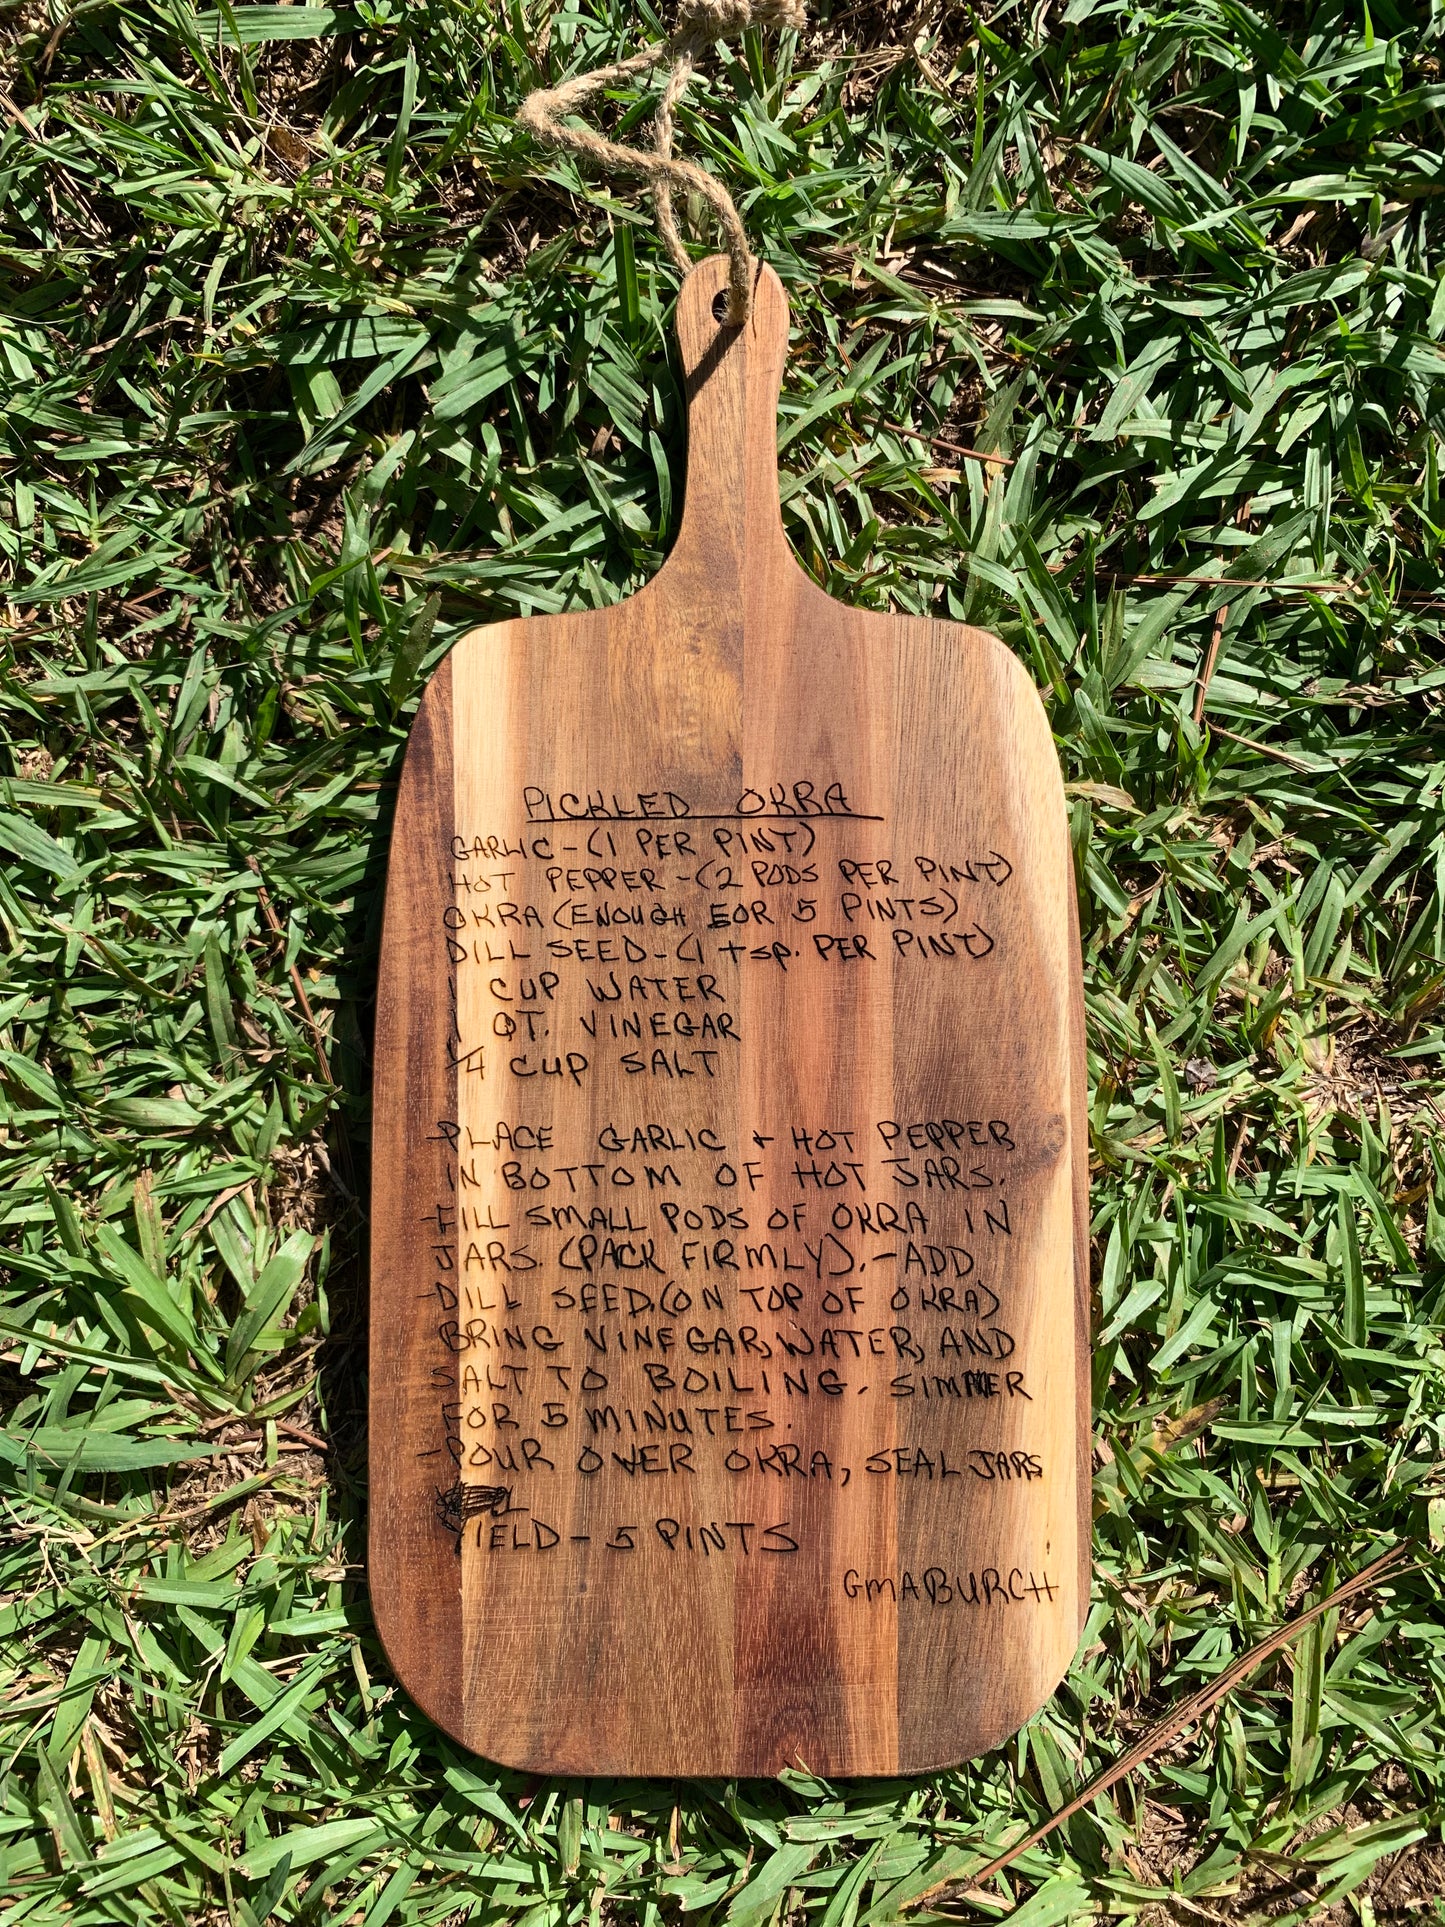 PICKLED OKRA
GARLIC - (1 PER PINT)
HOT PEPPER - (2 PODS PER PINT)
OKRA (ENOUGH FOR 5 PINTS)
DILL SEED - (1 tsp. PER PINT)
1 CUP WATER
1 QT. VINEGAR
1/4 CUP SALT
-PLACE GARLIC + HOT PEPPER
IN BOTTOM OF HOT JARS.
-FILL SMALL PODS OF OKRA IN
JARS. (PACK FIRMLY). - ADD
-DILL SEED. (ON TOP OF OKRA)
BRING VINEGAR, WATER, AND
SALT TO BOILING. SIMMER
FOR 5 MINUTES.
-POUR OVER OKRA, SEAL JARS
YIELD - 5 PINTS
GMABURCH